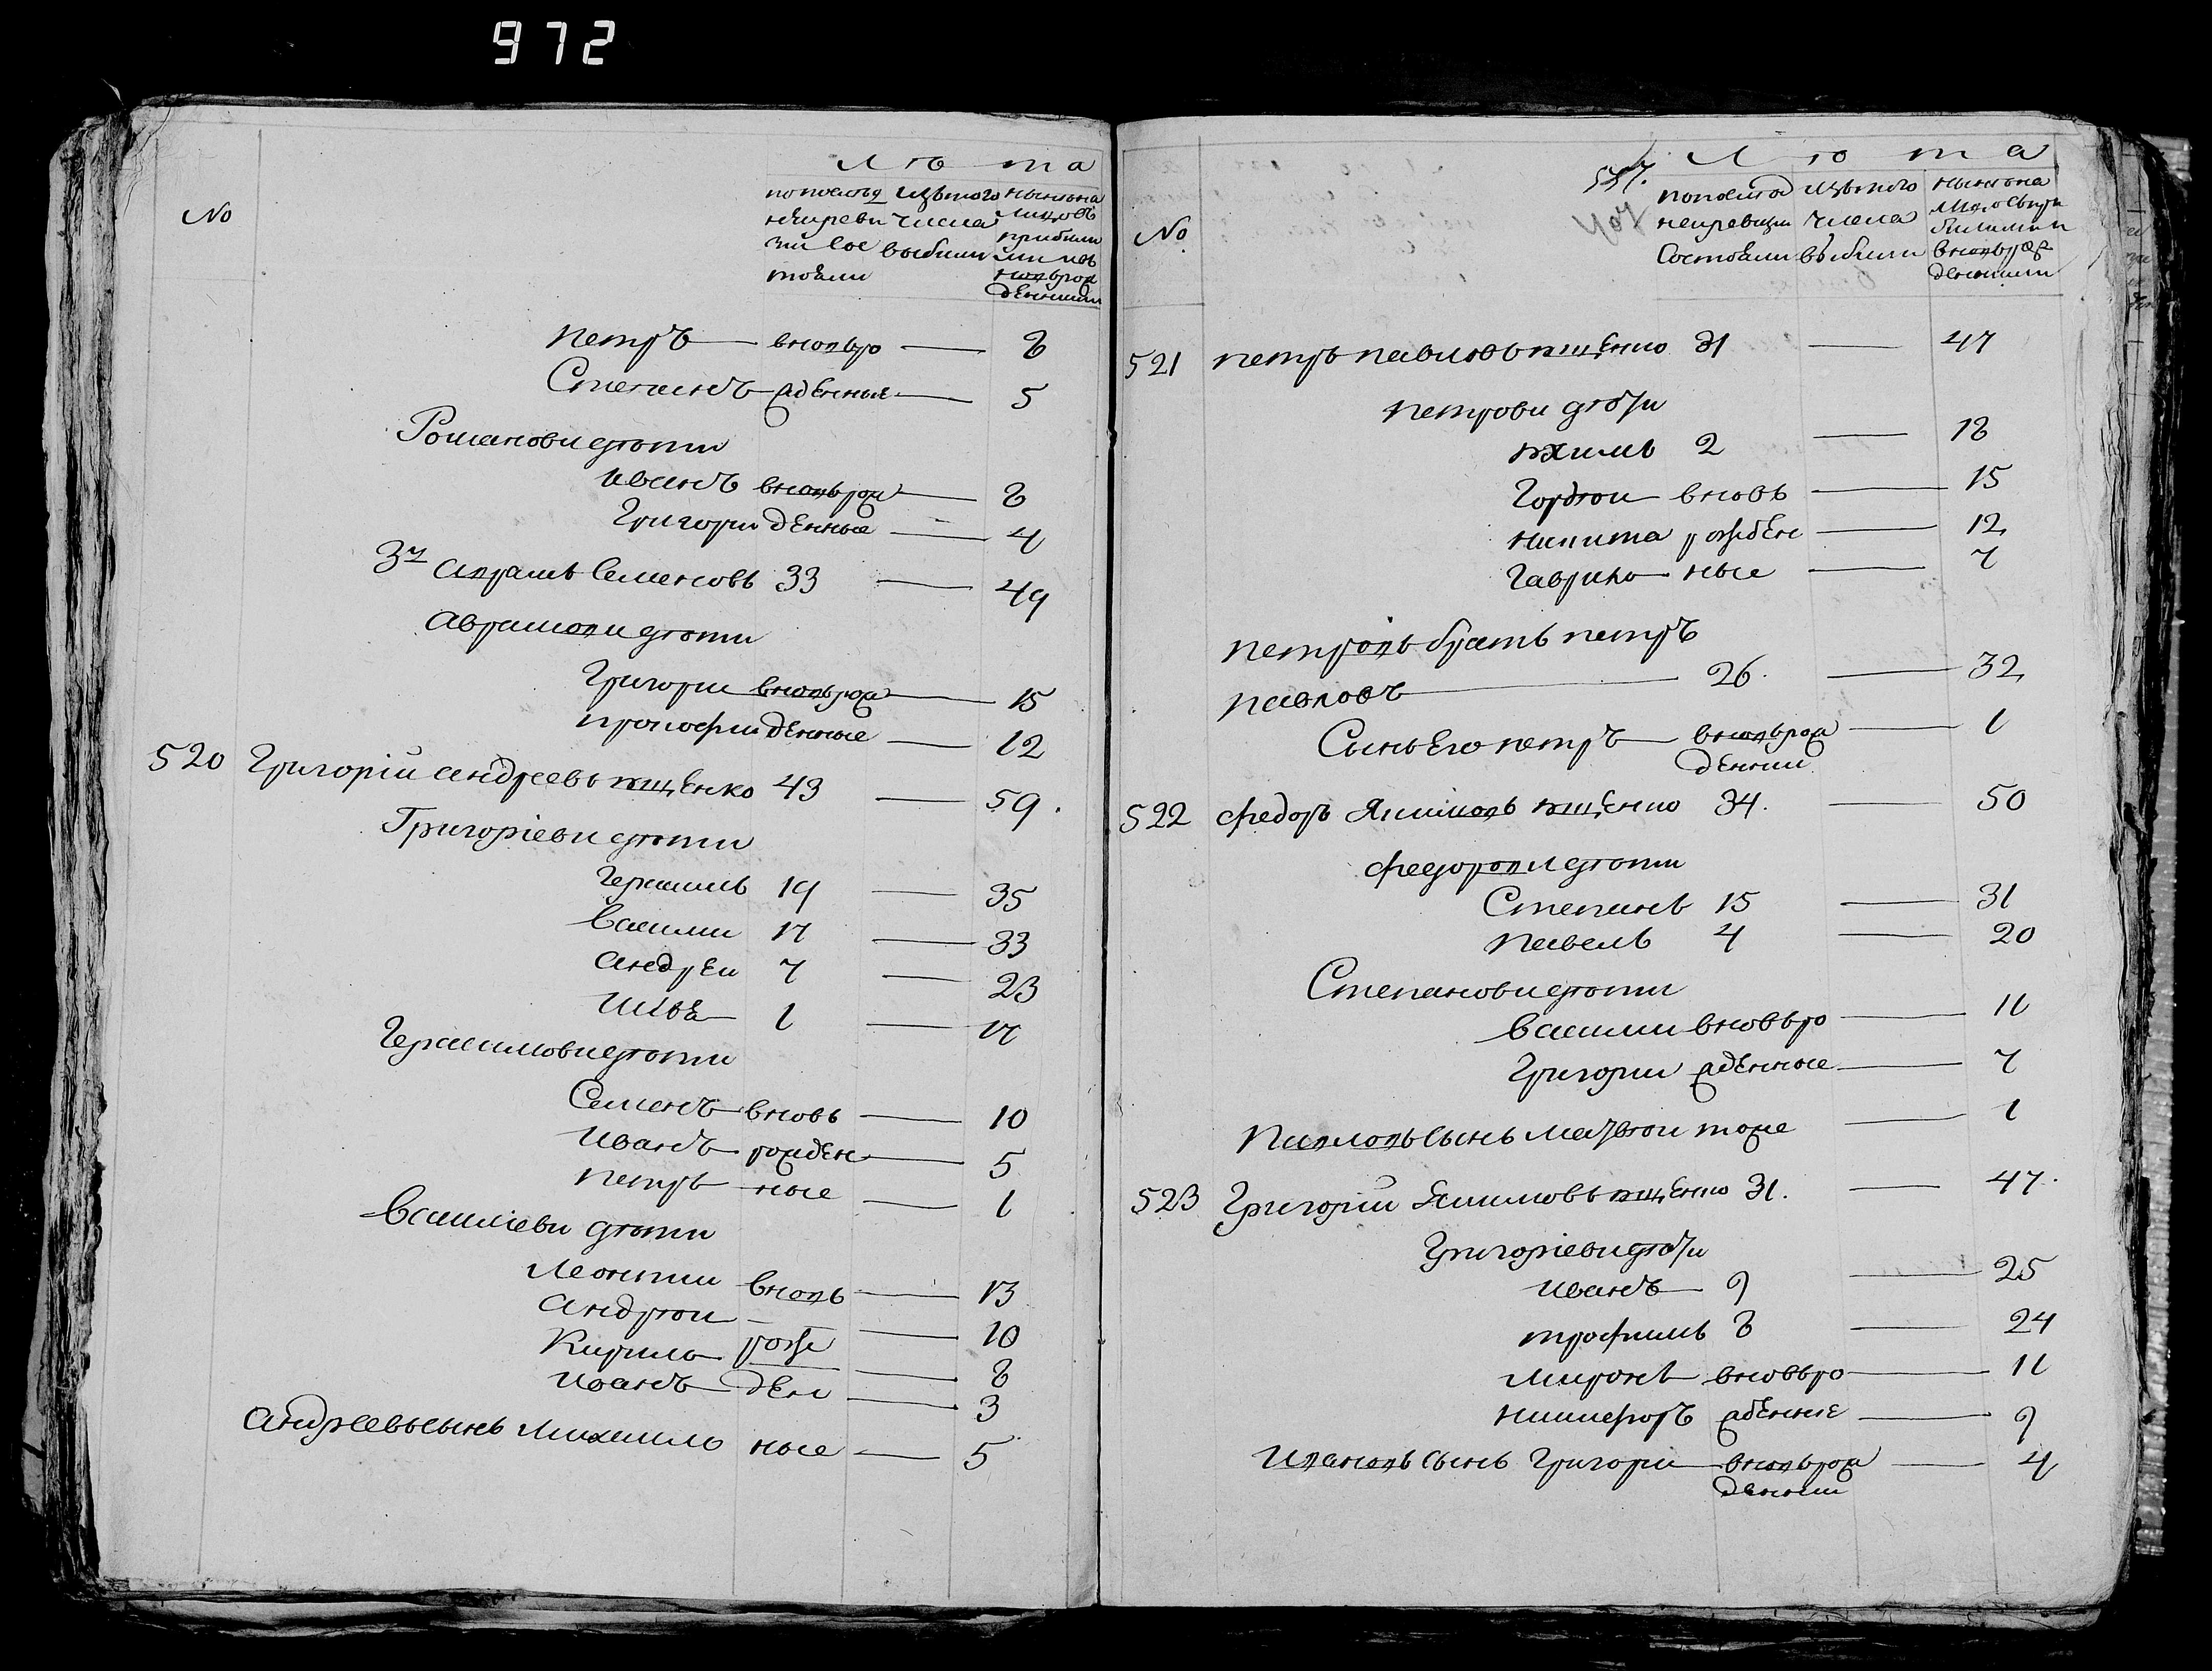 972
№
Лѣта
по послѣд ней реви зiи сос тояли
изъ того числа выбыли
ныне на лицо съ прибыли ми и въ новьрож денними
Петръ вновьро — 8
Степанъ жденные — 5
Романови дѣти
Иванъ вновьрож — 8
Григори денные — 4
3й Авраамъ Семеновъ 33 — 49
Аврамови дѣти
Григори вновьрож — 15
Прокофии денные — 12
520 Григорiй Андреевъ Ющенко 43 — 59.
Григорiеви дѣти
Герасимъ 19 — 35
Василии 17 — 33
Андреи 7 — 23
1 — 17
Герасимови дѣти
Семенъ вновь — 10
Иванъ рожден — 5
Петръ ные — 1
Василiеви дѣти
Леонтии вновь — 13
Андреи — 10
Кирило рож — 8
Иванъ ден — 3
Андреевъ сынъ Михаило ные — 5
547.
Лѣта
№
по послед ней ревизiи состояли
изъ того числа выбыли
ныне на лицо съ при былими и вновьрож денними
521 Петръ Павловъ Ющенко 31 — 47
Петрови дѣти
2 — 18
Гордѣи вновь — 15
Никита рожден — 12
Гаврило ные — 7
Петровъ братъ Петръ
Павловъ — 26. — 32
Сынъ Его Петръ вновьрож — 1
денныи
522 Федоръ Якимовъ Ющенко 34. — 50
Федорови дѣти
Степанъ 15 — 31
Павелъ 4 — 20
Степанови дѣти
Василии вновьро — 11
Григории жденные — 7
Павловъ сынъ Матвѣи тоже — 1
523 Григорiй Якимовъ Ющенко 31. — 47.
Григорiеви дѣти
Иванъ 9 — 25
Трофимъ 8 — 24
Миронъ вновьро — 11
Никифоръ жденные — 9
Ивановъ сынъ Григории вновьрож — 4
денныи